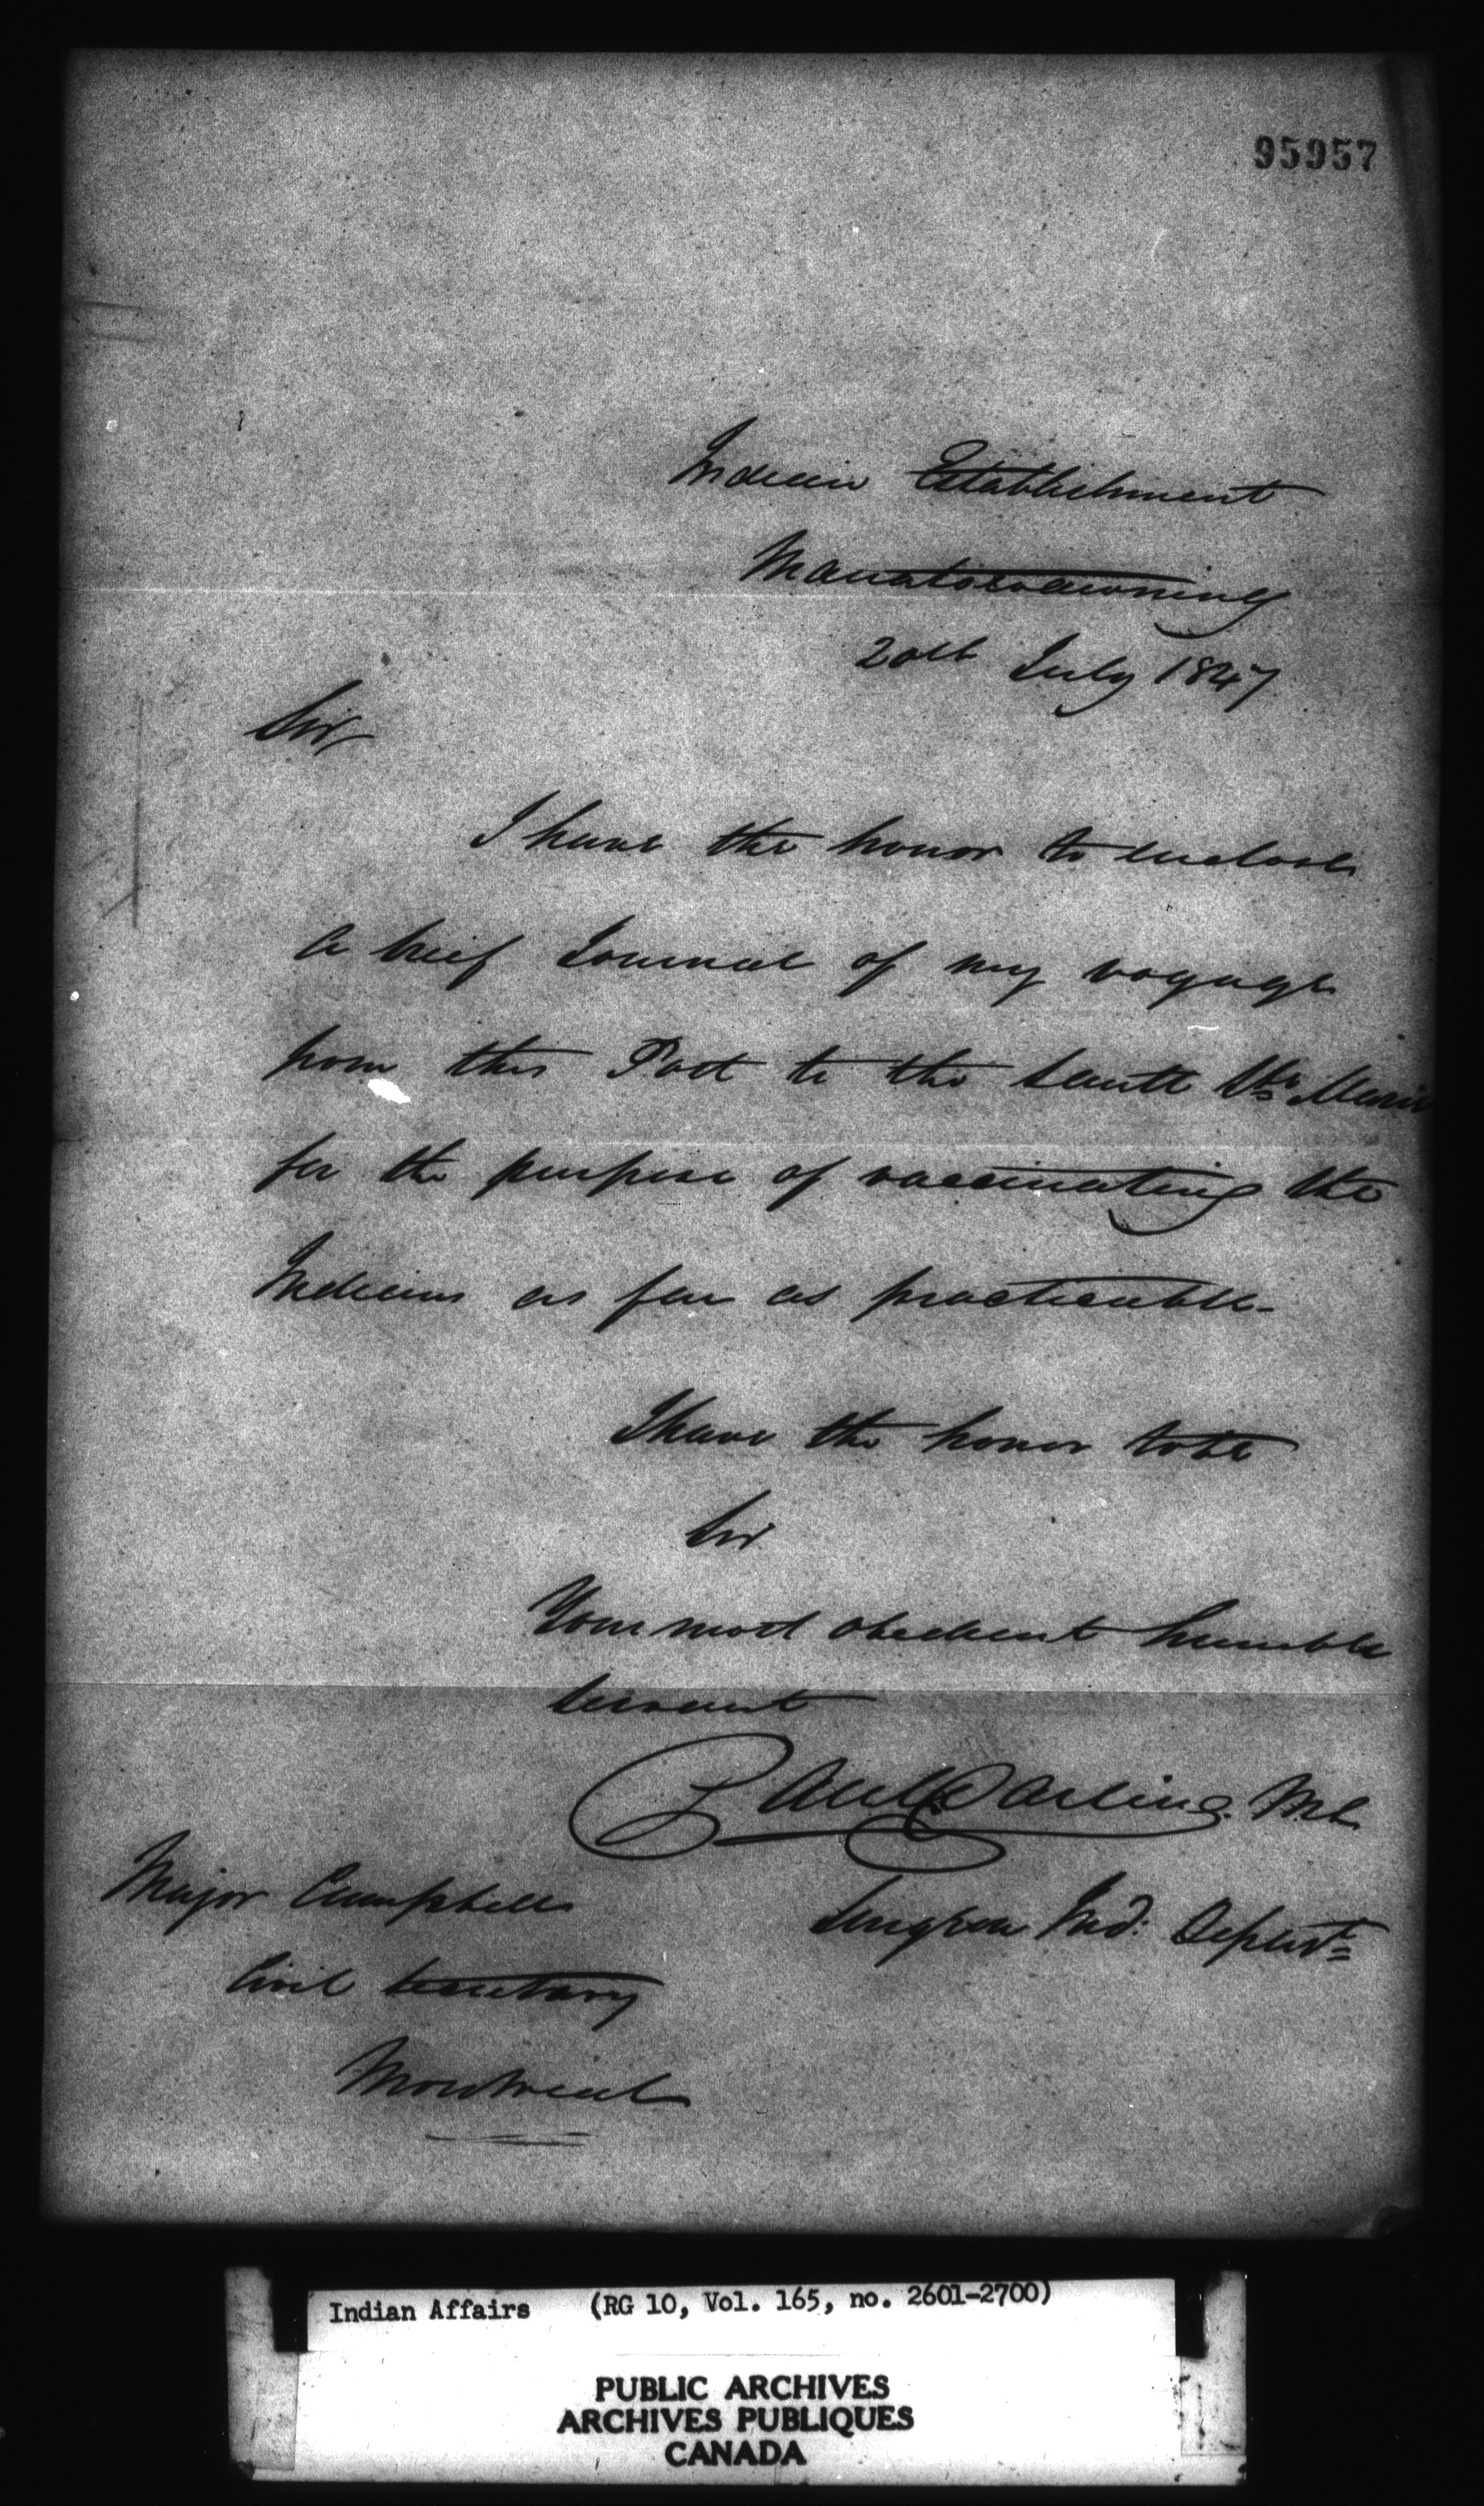 95957
Indian Establishment
Manatoowawning
20th July 1847
Sir,
I have the honor to enclose
a brief Journal of my voyage
from this Post to the Sault Ste Marie
for the purpose of vaccinating the
Indians as far as practicable.
I have the honor to be
Sir
Your most obedient humble
Servant
Darling.
Major Campbell
Surgeon Ind: Depart
Civil Secretary
Montreal
Indian Affairs (RG 10, Vol. 165, no. 2601-2700)
PUBLIC ARCHIVES
ARCHIVES PUBLIQUES
CANADA